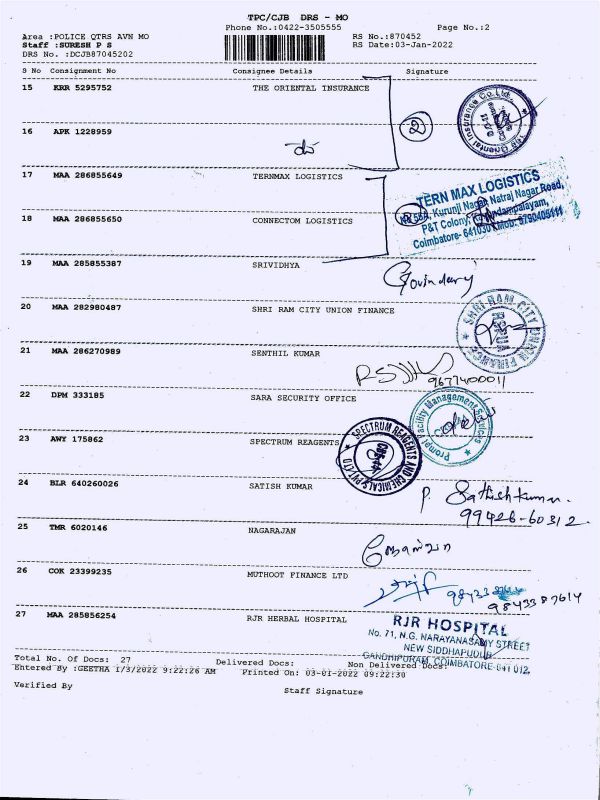 TPC/CJB DRS - MO
Phone No.:0422-3505555 Page No.:2
Area :POLICE QTRS AVN MO RS No.:870452
Staff :SURESH P S RS Date:03-Jan-2022
DRS No. :DCJB87045202
S No Consignment No Consignee Details Signature
15 KRR 5295752 THE ORIENTAL INSURANCE
2
16 APK 1228959
17 MAA 286855649 TERNMAX LOGISTICS
TERN MAX LOGISTICS
Kurunji Nagar, Natraj Nagar Road,
P&T Colony,
Coimbatore- 641030 Mob: 9790405111
18 MAA 286855650 CONNECTOM LOGISTICS
19 MAA 285855387 SRIVIDHYA
20 MAA 282980487 SHRI RAM CITY UNION FINANCE
SHRI RAM CITY UNION FINANCE
21 MAA 286270989 SENTHIL KUMAR
9677400011
22 DPM 333185 SARA SECURITY OFFICE
Prompt Facility Management Services
23 AWY 175862 SPECTRUM REAGENTS
SPECTRUM REAGENTS AND CHEMICALS PVT LTD
24 BLR 640260026 SATISH KUMAR
P. Sathishkumar.
99426-60312
25 TMR 6020146 NAGARAJAN
26 COK 23399235 MUTHOOT FINANCE LTD
98433 87614
27 MAA 285856254 RJR HERBAL HOSPITAL
RJR HOSPITAL
No. 71, N.G. NARAYANASAMY STREET
NEW SIDDHAPUDUR
GANDHIPURAM, COIMBATORE-641 012.
Total No. Of Docs: 27 Delivered Docs: Non Delivered Docs:
Entered By :GEETHA 1/3/2022 9:22:26 AM Printed On: 03-01-2022 09:22:30
Verified By Staff Signature